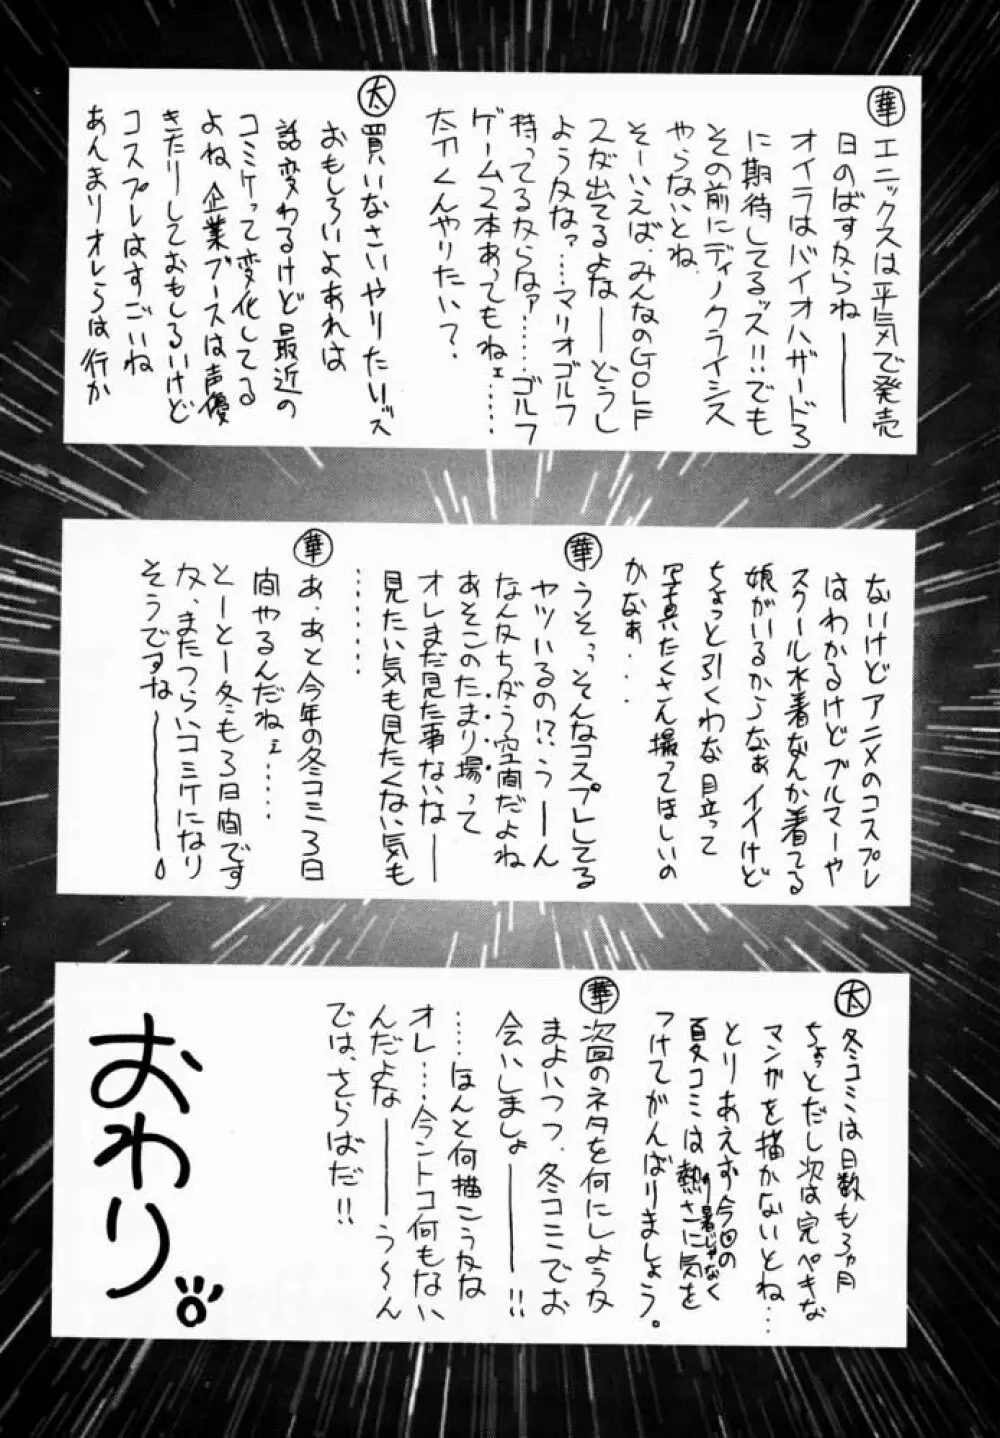 華 エニックスは平気で発売
日のばすならね――
オイラはバイオハザード3
に期待してるッス!!でも
その前にディノクライシス
やらないとね
そーいえば、みんなのGOLF
スグ出てるよな――どうし
ような…マリオゴルフ
持ってるならなァ……ゴルフ
ゲーム2本あってもねェ……
太刀くんやりたい?
太 買いなさいやりたいッス
おもしろいよあれは
話変わるけど最近の
コミケって変化してる
よね、企業ブースは声優
きたりしておもしろいけど
コスプレはすごいね
あんまりオレらは行か
ないけどアニメのコスプレ
はわかるけどブルマーや
スクール水着なんか着てる
娘がいるからなぁイイけど
ちょっと引くわな目立って
写真たくさん撮ってほしいの
かなぁ...
華 うそっっそんなコスプレしてる
ヤツいるの!?うーーん
なんかちがう空間だよね
あそこのたまり場って
オレまだ見た事ないな――
見たい気も見たくない気も
......
華 あ、あと今年の冬コミ3日
間やるんだねェ……
とーとー冬も3日間です
な、またつらいコミケになり
そうですな――。
太 冬コミは日数も3ヵ月
ちょっとだし次は完ペキな
マンガを描かないとね...
とりあえず今回の
夏コミは熱さに気を
暑じゃなく
つけてがんばりましょう。
華 次回のネタを何にしような
まよいつつ、冬コミでお
会いしましょ――!!
……ほんと何描こうなな
オレ…今ントコ何もない
んだよな――う〜ん
では、さらばだ!!
おわり。